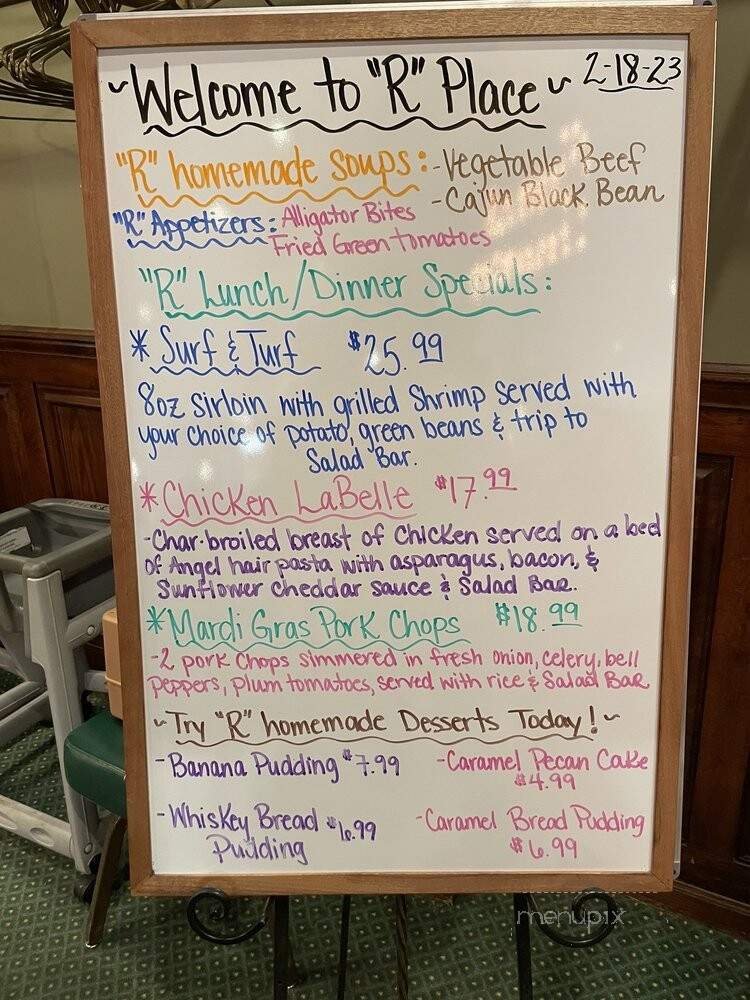 ~Welcome to "R" Place~ 2-18-23
"R" homemade soups: -Vegetable Beef
-Cajun Black Bean
"R" Appetizers: Alligator Bites
Fried Green tomatoes
"R" Lunch/Dinner Specials:
* Surf & Turf $25.99
8oz sirloin with grilled Shrimp served with
your choice of potato, green beans & trip to
Salad Bar.
* Chicken LaBelle $17.99
-Char-broiled breast of Chicken served on a bed
of Angel hair pasta with asparagus, bacon, &
Sunflower cheddar sauce & Salad Bar.
* Mardi Gras Pork Chops $18.99
-2 pork chops simmered in fresh onion, celery, bell
peppers, plum tomatoes, served with rice & Salad Bar
~Try "R" homemade Desserts Today!~
-Banana Pudding $7.99 -Caramel Pecan Cake
$4.99
-Whiskey Bread $6.99 -Caramel Bread Pudding
Pudding $6.99
menupix